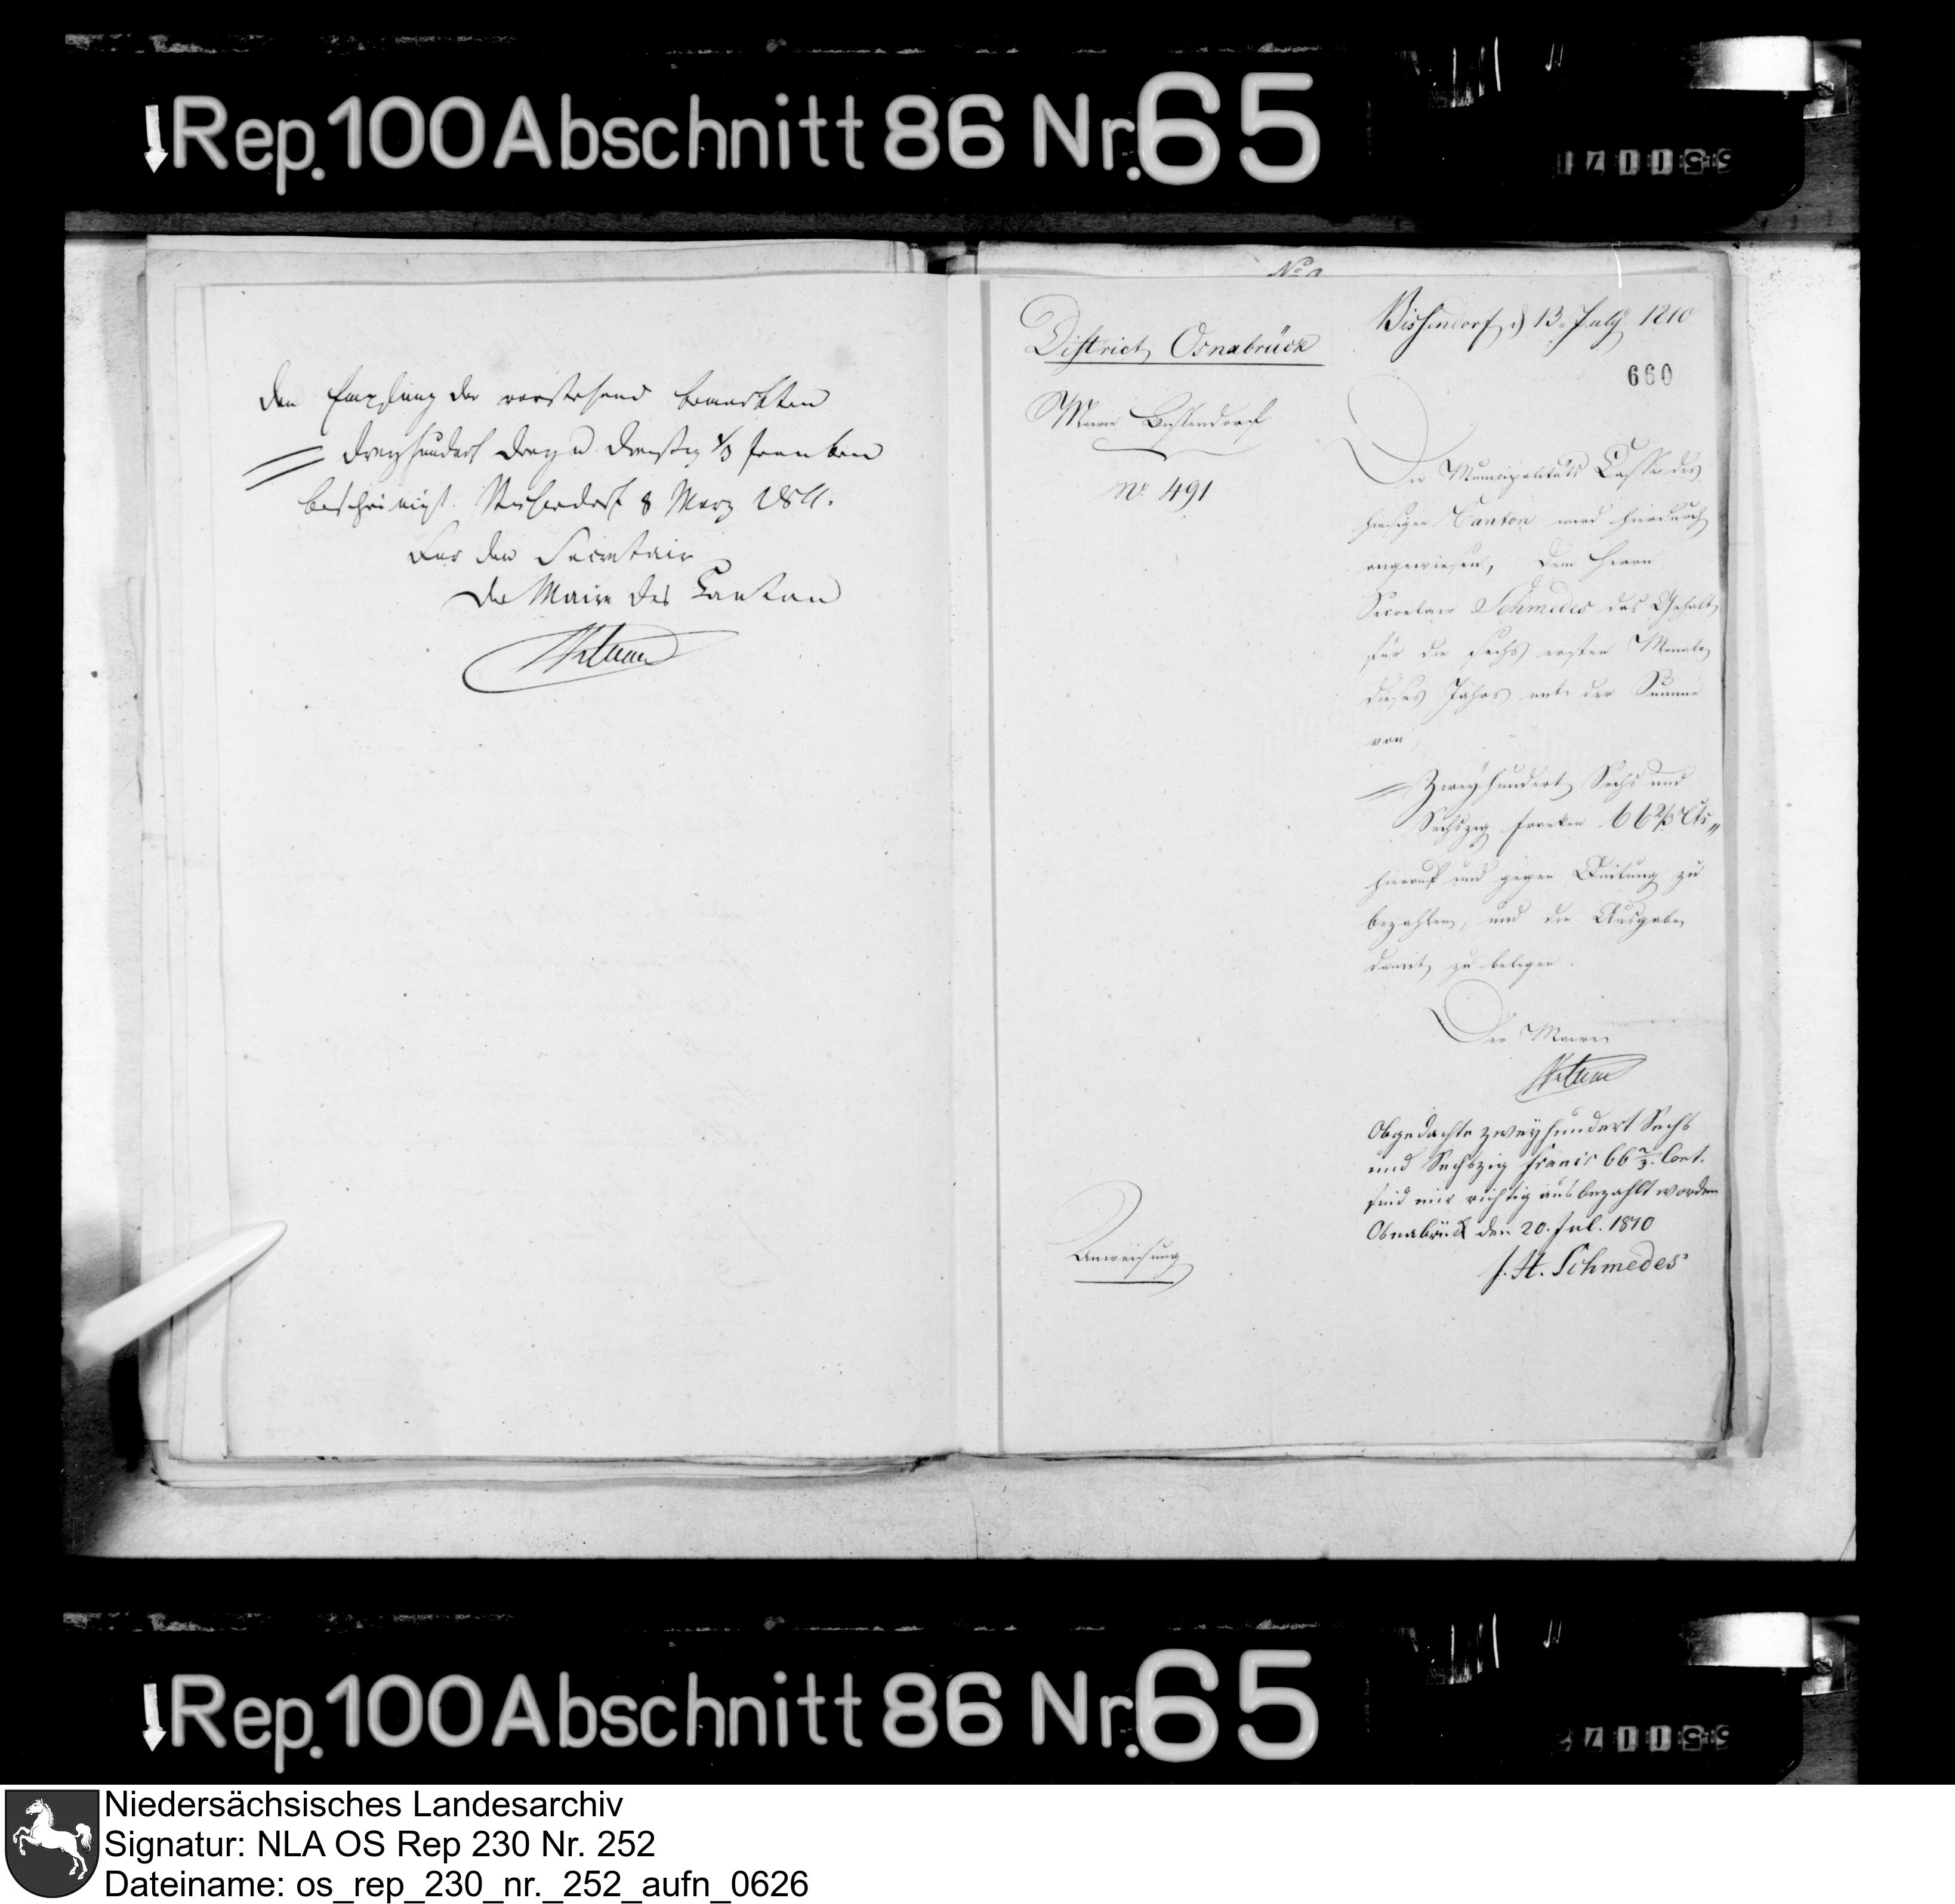 Rep. 100 Abschnitt 86 Nr. 65
den Empfang der vorstehend bemerkten
dreyhundert drey u dreißig 1/3 franken
bescheinigt. 8 Merz 1811.
Für den Secretair
der Maire des Canton
No
District Osnabrück
Maire Bissendorf
No 491
Anweisung
Bissendorf d 13. July 1810
660
Die Municipalitäts Casse des
hiesigen Canton wird hierdurch
angewiesen, dem Herrn
Secretair Schmedes das Gehalt
für die sechs ersten Monate
dieses Jahrs mit der Summe
von
Zweyhundert Sechs und
Sechszig Franken 66 2/3 Cts
hierauf und gegen Quitung zu
bezahlen, und die Ausgabe
damit zu belegen.
Der Maire
Obgedachte zweyhundert Sechs
und Sechszig Francs 66 2/3. Cent.
sind mir richtig ausbezahlt worden
Osnabrück den 20. Jul. 1810
J. H. Schmedes
Rep. 100 Abschnitt 86 Nr. 65
Niedersächsisches Landesarchiv
Signatur: NLA OS Rep 230 Nr. 252
Dateiname: os_rep_230_nr._252_aufn_0626